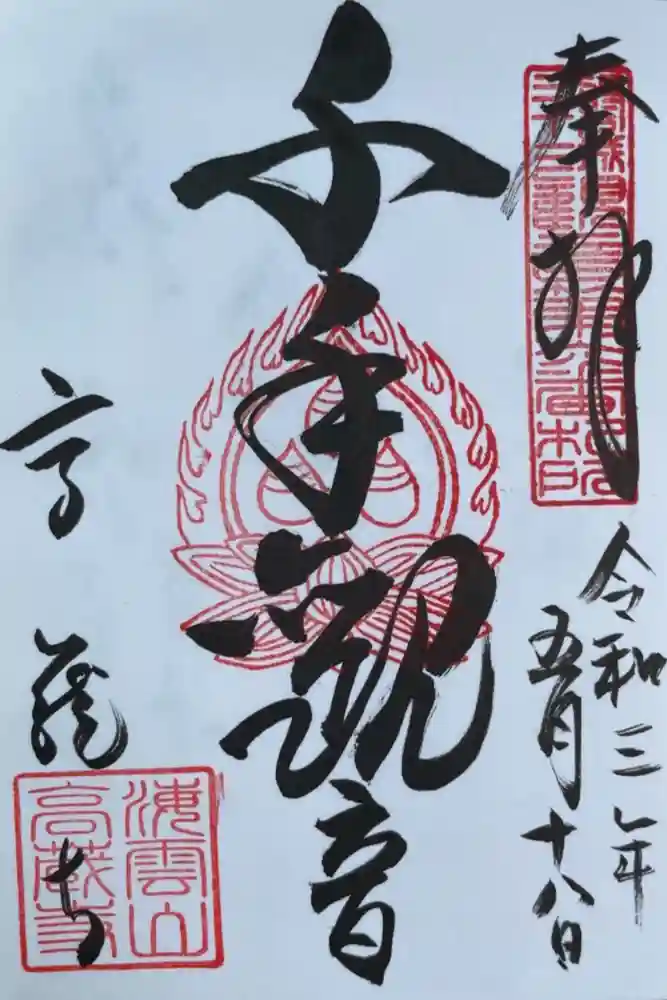 奉拝
令和三年
五月十八日
千手観音
高蔵寺
海雲山
高蔵寺